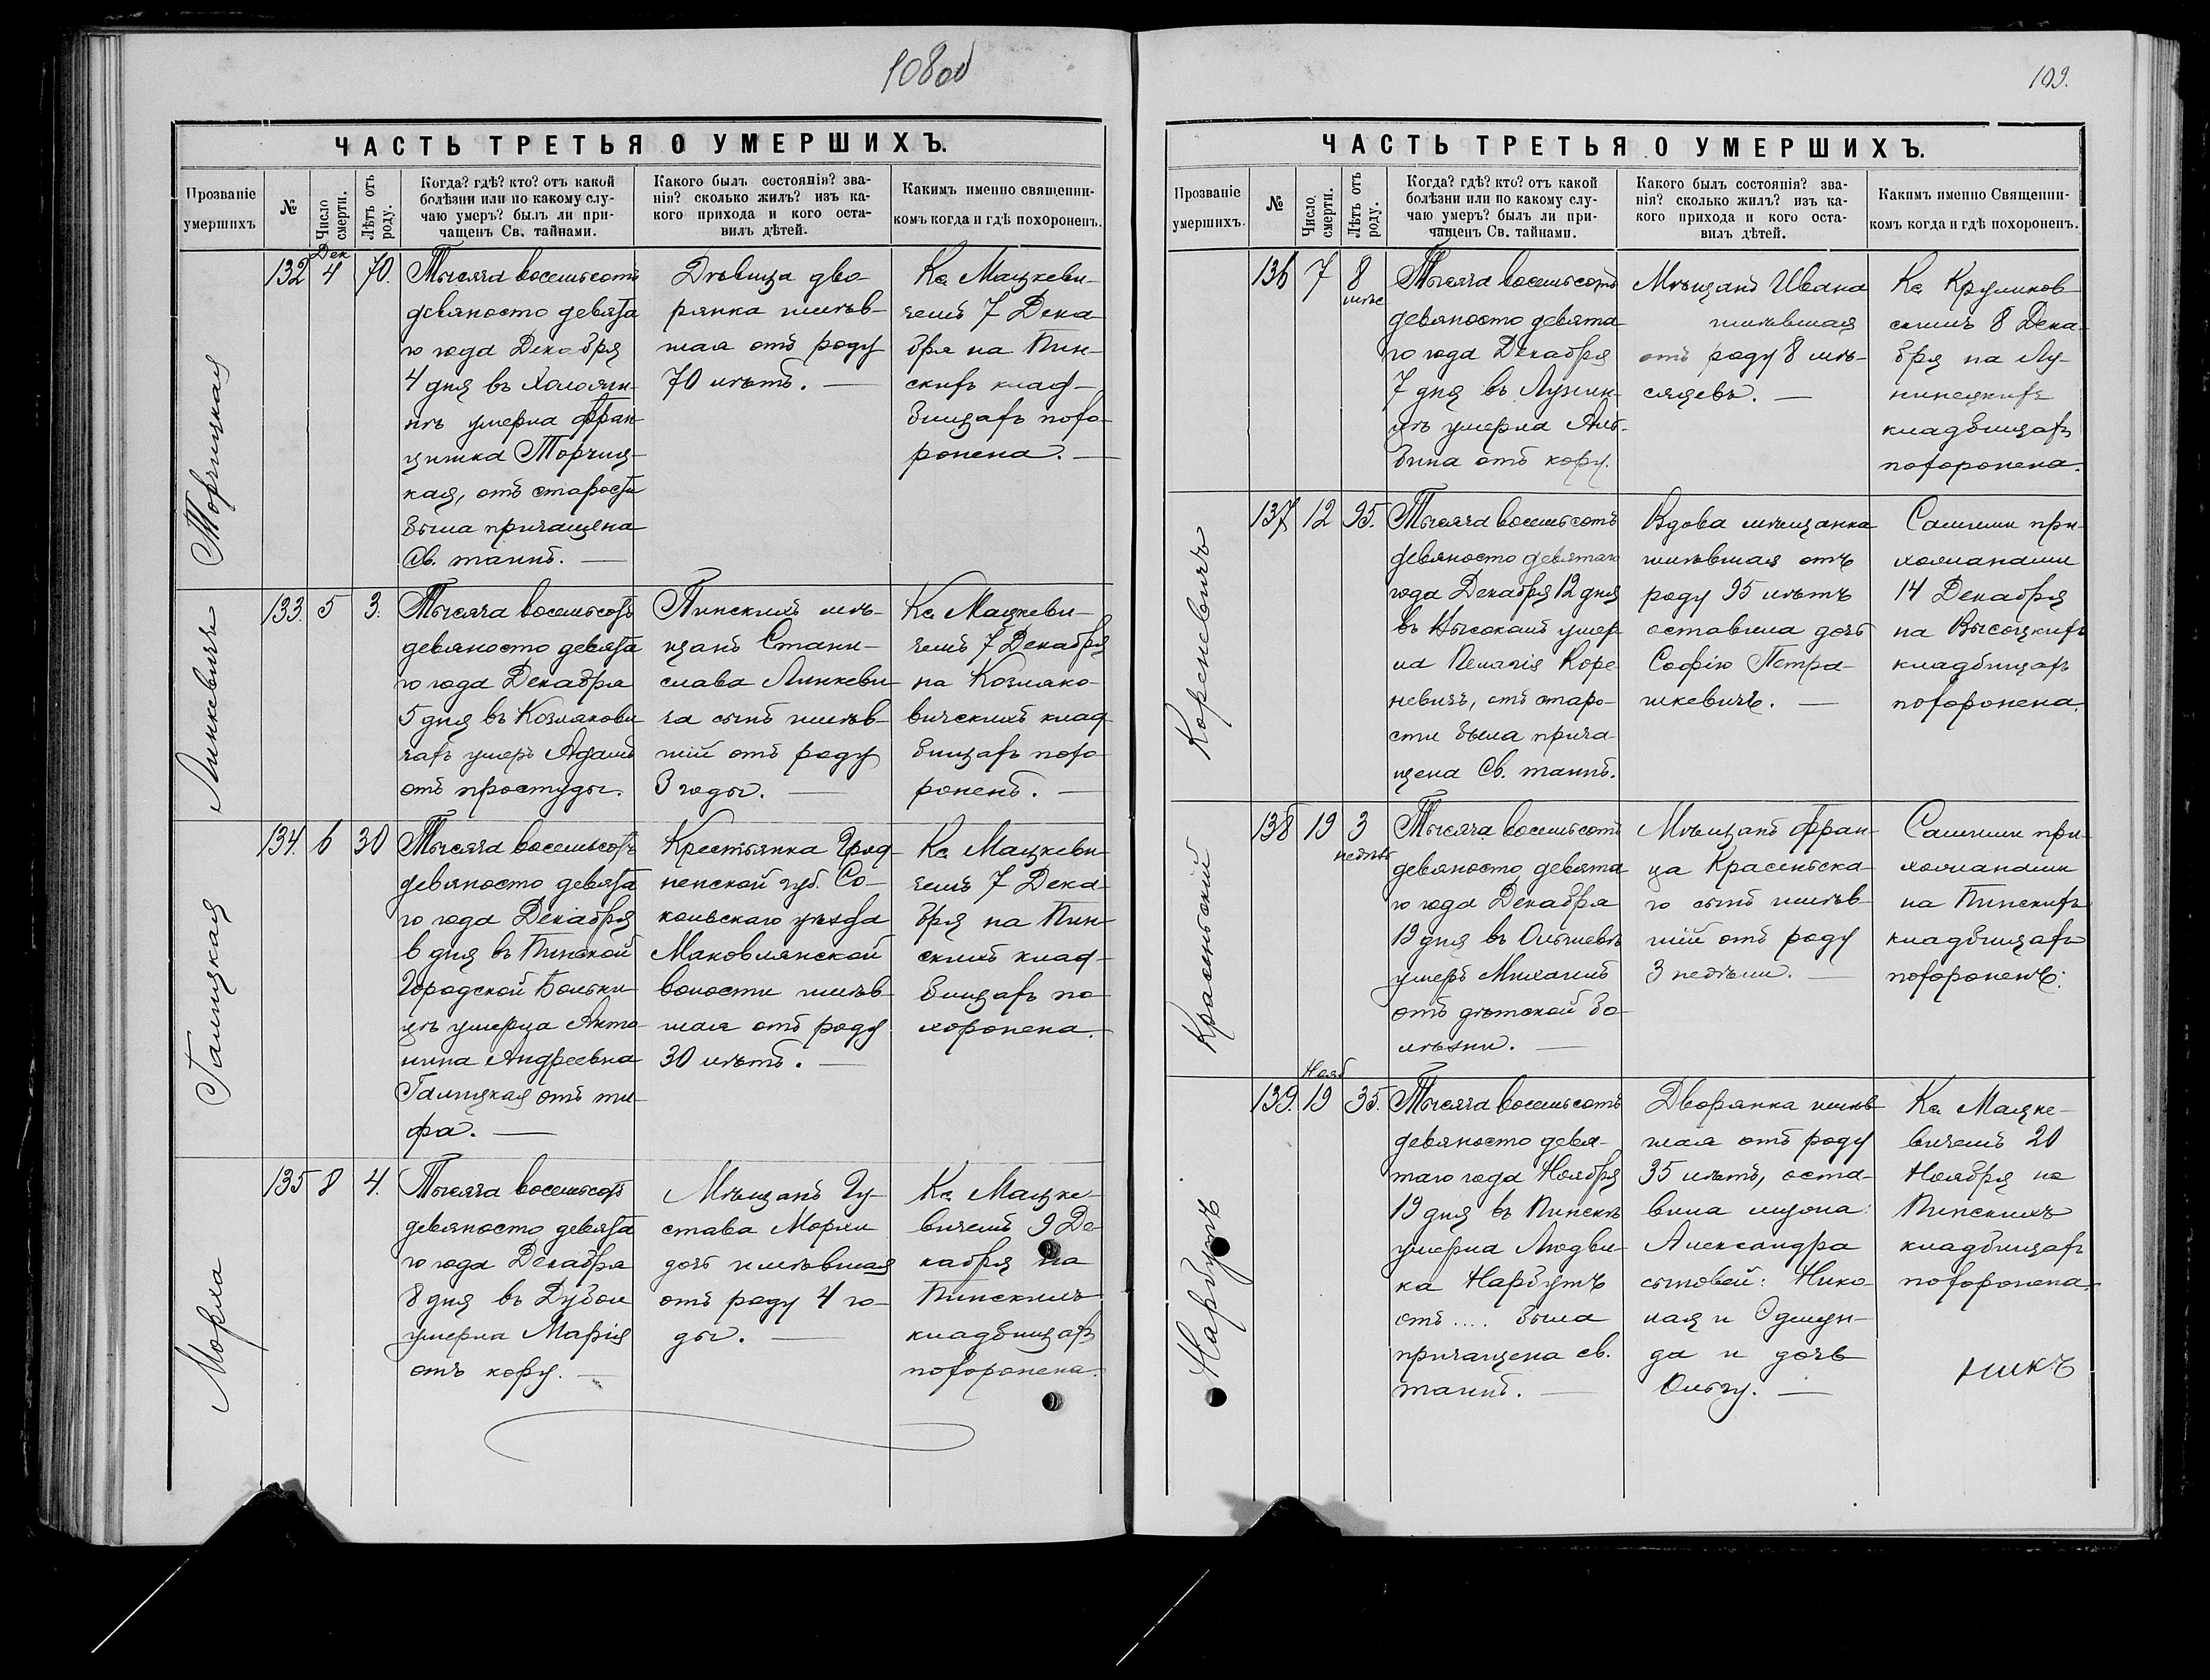 108 об
ЧАСТЬ ТРЕТЬЯ О УМЕРШИХЪ.
Прозваніе умершихъ
№
Число смерти.
Лѣтъ отъ роду.
Когда? гдѣ? кто? отъ какой
болѣзни или по какому слу-
чаю умеръ? былъ ли при-
чащенъ Св. тайнами.
Какого былъ состоянія? зва-
нія? сколько жилъ? изъ ка-
кого прихода и кого оста-
вилъ дѣтей.
Какимъ именно священни-
комъ когда и гдѣ похороненъ.
Торчицкая
132
Дек
4
70.
Тысяча восемьсотъ
девяносто девята
го года Декабря
4 дня въ
умерла Фран
цишка Торчиц-
кая, отъ старости
была причащена
Св. таинъ.
Дѣвица дво-
рянка имѣв-
шая отъ роду
70 лѣтъ.
Кс. Мацкеви-
чемъ 7 Дека
бря на Пин-
скихъ клад-
бищахъ похо-
ронена.
Линкевичъ
133.
5
3.
Тысяча восемьсотъ
девяносто девята
го года Декабря
5 дня въ Козлякови
чахъ умеръ Адамъ
отъ простуды.
Пинскихъ мѣ-
щанъ Стани-
слава Линкеви
ча сынъ имѣв-
шій отъ роду
3 годы.
Кс. Мацкеви-
чемъ 7 Декабря
на Козляко-
вичскихъ клад
бищахъ похо-
роненъ.
Галицкая
134.
6
30
Тысяча восемьсотъ
девяносто девята
го года Декабря
6 дня въ Пинской
Городской Больни-
цѣ умерла Анто-
нина Андреевна
Галицкая отъ ти-
фа.
Крестьянка Грод-
ненской губ. Со-
кольскаго уѣзда
Маковлянской
волости имѣв-
шая отъ роду
30 лѣтъ.
Кс. Мацкеви
чемъ 7 Дека
бря на Пин
скихъ клад-
бищахъ по-
хоронена.
Морха
135
8
4.
Тысяча восемьсотъ
девяносто девята
го года Декабря
8 дня въ Дубои
умерла Марія
отъ кору.
Мѣщанъ Гу-
става Морхи
дочь имѣвшая
отъ роду 4 го-
ды.
Кс. Мацке-
вичемъ 9 Де-
кабря на
Пинскихъ
кладбищахъ
похоронена.
109.
ЧАСТЬ ТРЕТЬЯ О УМЕРШИХЪ.
Прозваніе умершихъ.
№
Число смерти.
Лѣтъ отъ роду.
Когда? гдѣ? кто? отъ какой
болѣзни или по какому слу-
чаю умеръ? былъ ли при-
чащенъ Св. тайнами.
Какого былъ состоянія? зва-
нія? сколько жилъ? изъ ка-
кого прихода и кого оста-
вилъ дѣтей.
Какимъ именно Священни-
комъ когда и гдѣ похороненъ.
136
7
8
мѣс
Тысяча восемьсотъ
девяносто девята
го года Декабря
7 дня въ Лунин-
цѣ умерла Аль-
бина отъ кору.
Мѣщанъ Ивана
имѣвшая
отъ роду 8 мѣ-
сяцевъ.
Кс. Круликов-
скимъ 8 Дека-
бря на Лу-
нинецкихъ
кладбищахъ
похоронена.
Кореневичъ
137
12
95.
Тысяча восемьсотъ
девяносто девятаго
года Декабря 12 дня
въ Высокомъ умер
ла Пелагія Коре-
невичъ, отъ старо-
сти была прича
щена Св. таинъ.
Вдова мѣщанка
имѣвшая отъ
роду 95 лѣтъ
оставила дочь
Софію Петра-
шкевичъ.
Самими при-
хожанами
14 Декабря
на Высоцкихъ
кладбищахъ
похоронена.
Красеньскій
138
19
3
недѣль
Тысяча восемьсотъ
девяносто девята
го года Декабря
19 дня въ Ольшевѣ
умеръ Михаилъ
отъ дѣтской бо-
лѣзни.
Мѣщанъ Фран-
ца Красеньска-
го сынъ имѣв-
шій отъ роду
3 недѣли.
Самими при-
хожанами
на Пинскихъ
кладбищахъ
похороненъ.
Нарбутъ
139.
Нояб
19
35.
Тысяча восемьсотъ
девяносто девя-
таго года Ноября
19 дня въ Пинскѣ
умерла Людви-
ка Нарбутъ
отъ .... была
причащена св.
таинъ.
Дворянка имѣв
шая отъ роду
35 лѣтъ, оста-
вила мужа:
Александра
сыновей: Нико-
лая и Эдмун-
да и дочь
Ольгу.
Кс. Мацке-
вичемъ 20
Ноября на
Пинскихъ
кладбищахъ
похоронена.